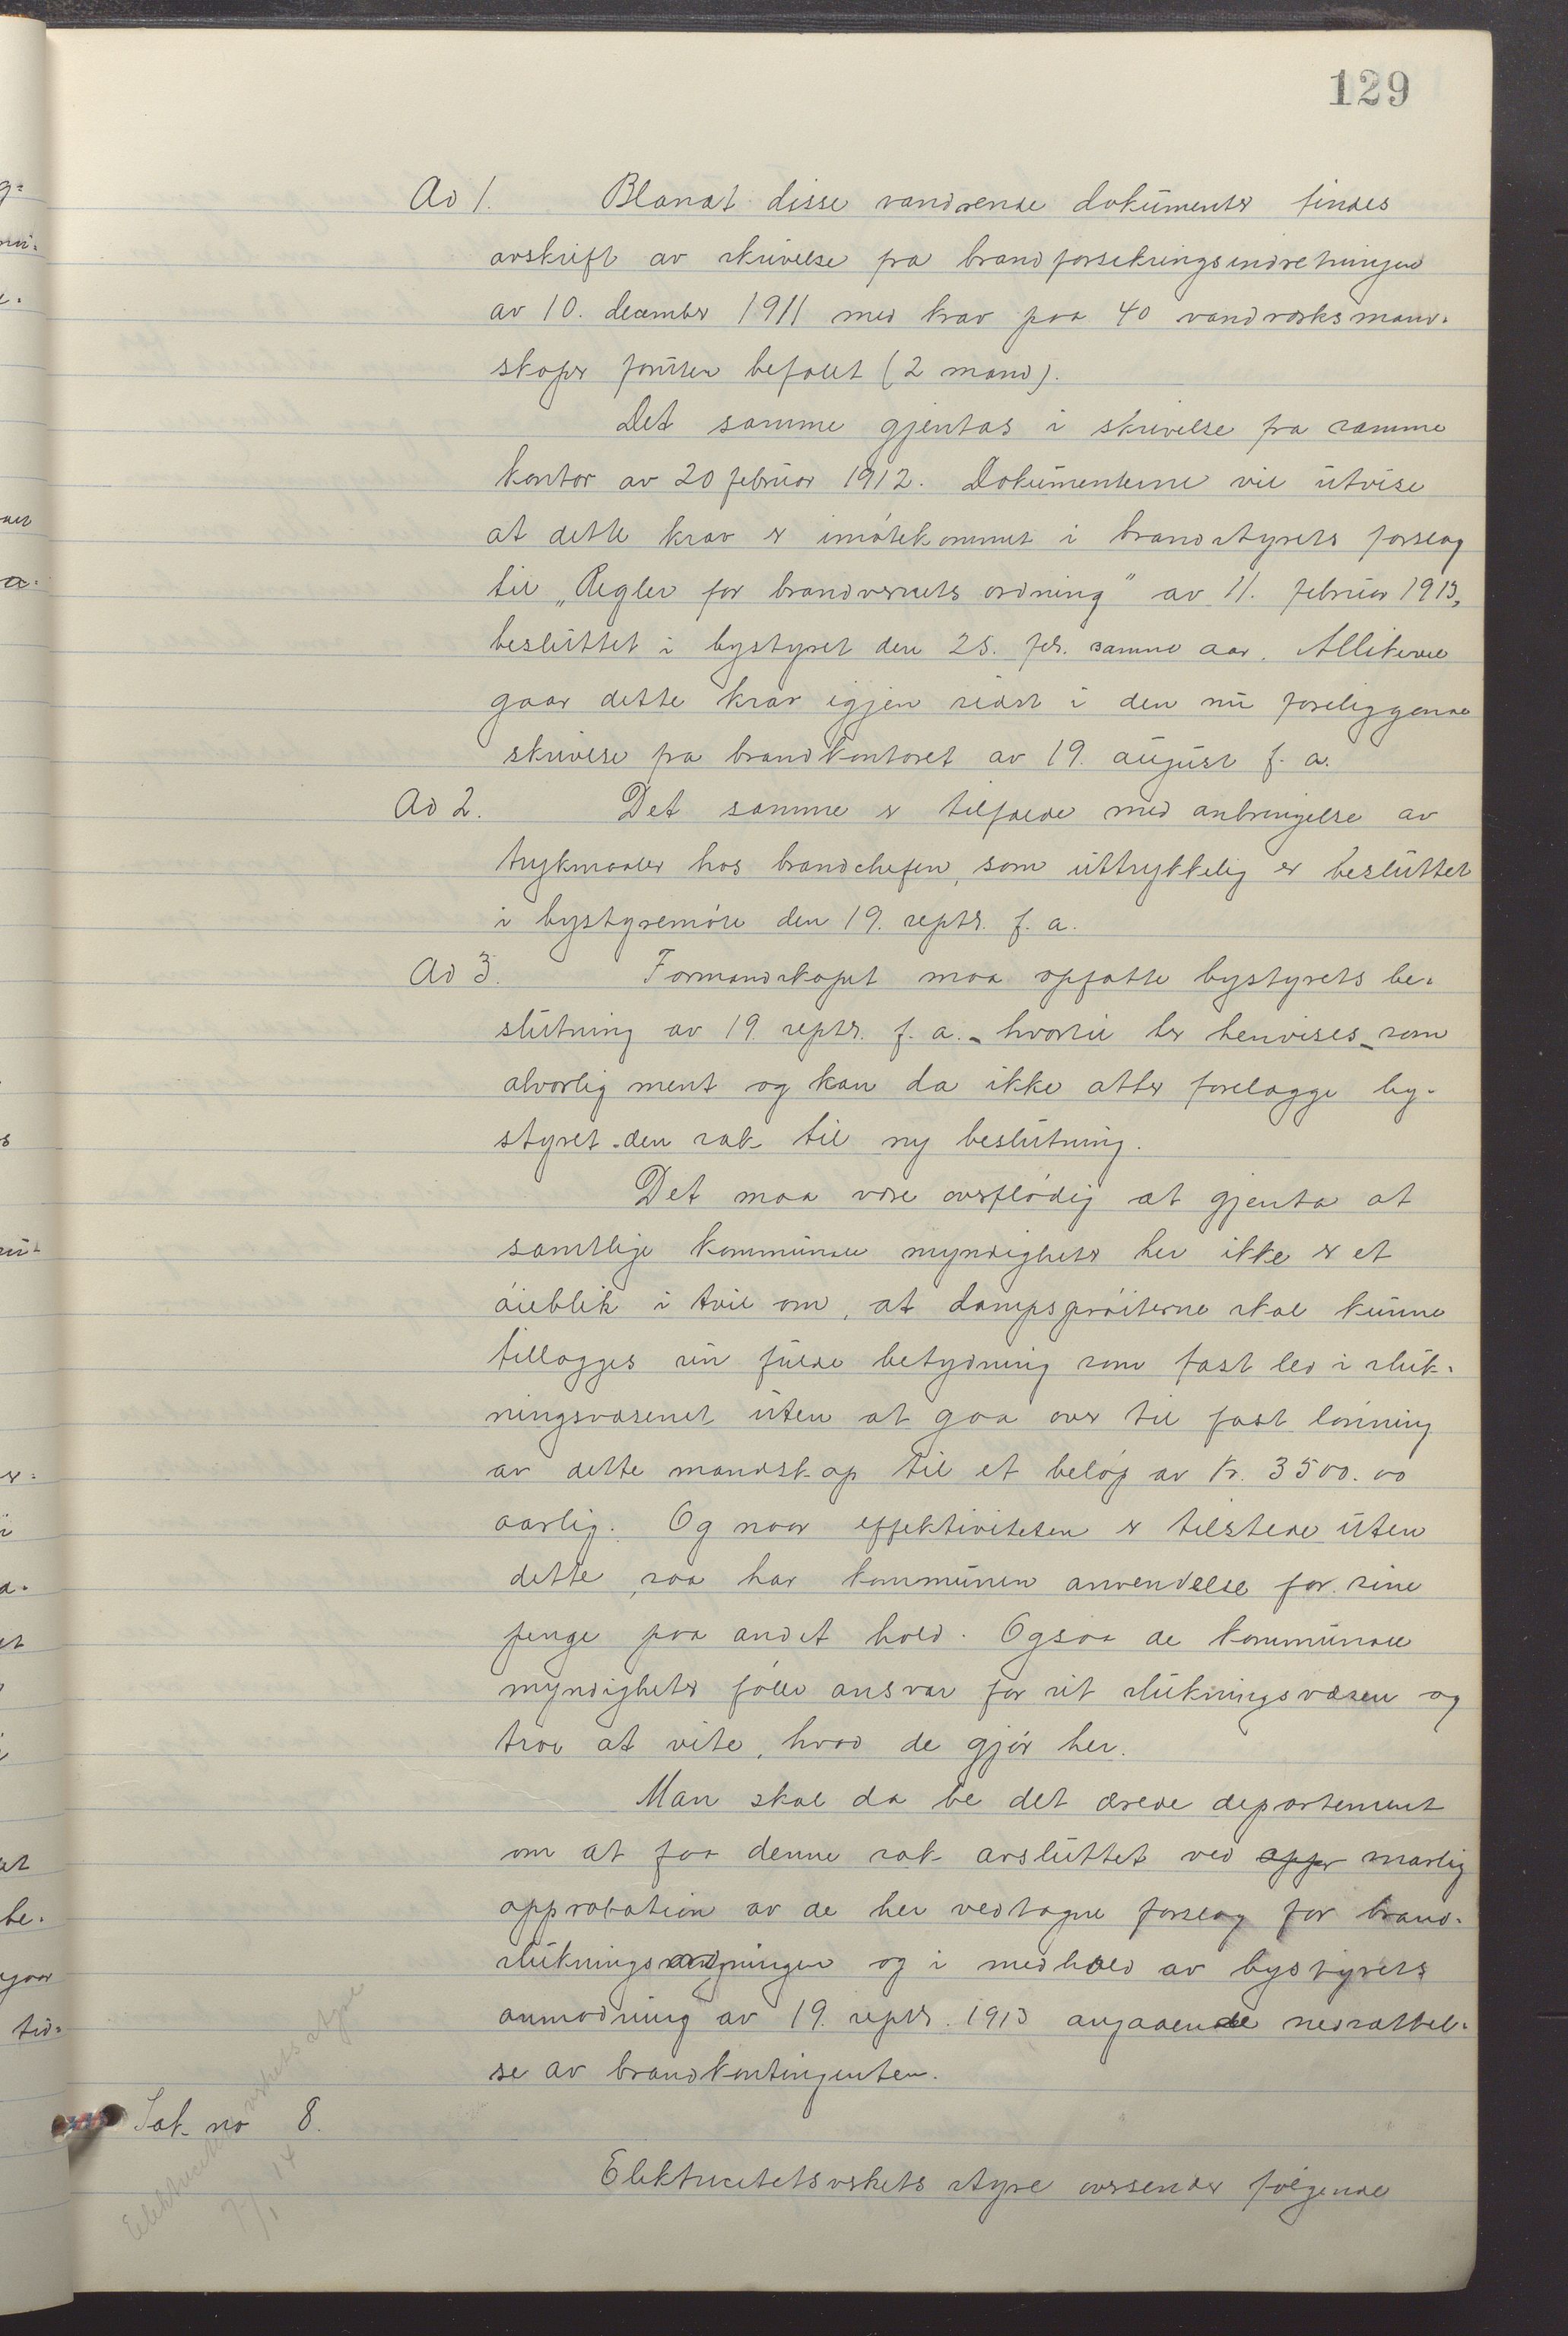 129
Ad 1. Blandt disse vandrende dokumenter findes
avskrift av skrivelse fra brandforsikringsindretningen
av 10. december 1911 med krav paa 40 vandverksmand-
skaper foruten befalet (2 mand).
Det samme gjentas i skrivelse fra samme
kontor av 20 februar 1912. Dokumenterne vil utvise
at dette krav er imøtekommet i brandstyrets forslag
til „Regler for brandvernets ordning" av 11. februar 1913,
besluttet i bystyret den 25. feb. samme aar. Allikevel
gaar dette krav igjen sidst i den nu foreliggende
skrivelse fra brandkontoret av 19. august f. a.
Ad 2. Det samme er tilfælde med anbringelse av
trykmaaler hos brandchefen, som uttrykkelig er besluttet
i bystyremøte den 19. septbr. f. a.
Ad 3. Formandskapet maa opfatte bystyrets be-
slutning av 19. septbr. f. a. - hvortil her henvises - som
alvorlig ment og kan da ikke atter forelægge by-
styret den sak til ny beslutning.
Det maa være overflødig at gjenta at
samtlige kommunale myndigheter her ikke er et
øieblik i tvil om, at dampsprøiterne skal kunne
tillægges sin fulde betydning som fast led i sluk-
ningsvæsenet uten at gaa over til fast lønning
av dette mandskap til et beløp av kr. 3500.00
aarlig. Og naar effektiviteten er tilstede uten
dette, saa har kommunen anvendelse for sine
penge paa andet hold. Ogsaa de kommunale
myndigheter føler ansvar for sit slukningsvæsen og
tror at vite, hvad de gjør her.
Man skal da be det ærede departement
om at faa denne sak avsluttet ved appr snarlig
approbation av de her vedtagne forslag for brand-
slukningsordningen og i medhold av bystyrets
anmodning av 19. septbr. 1913 angaaende nedsættel-
se av brandkontingenten.
Sak no 8.
Elektricitetsverkets styre
7/1 14
Elektricitetsverkets styre oversender følgende